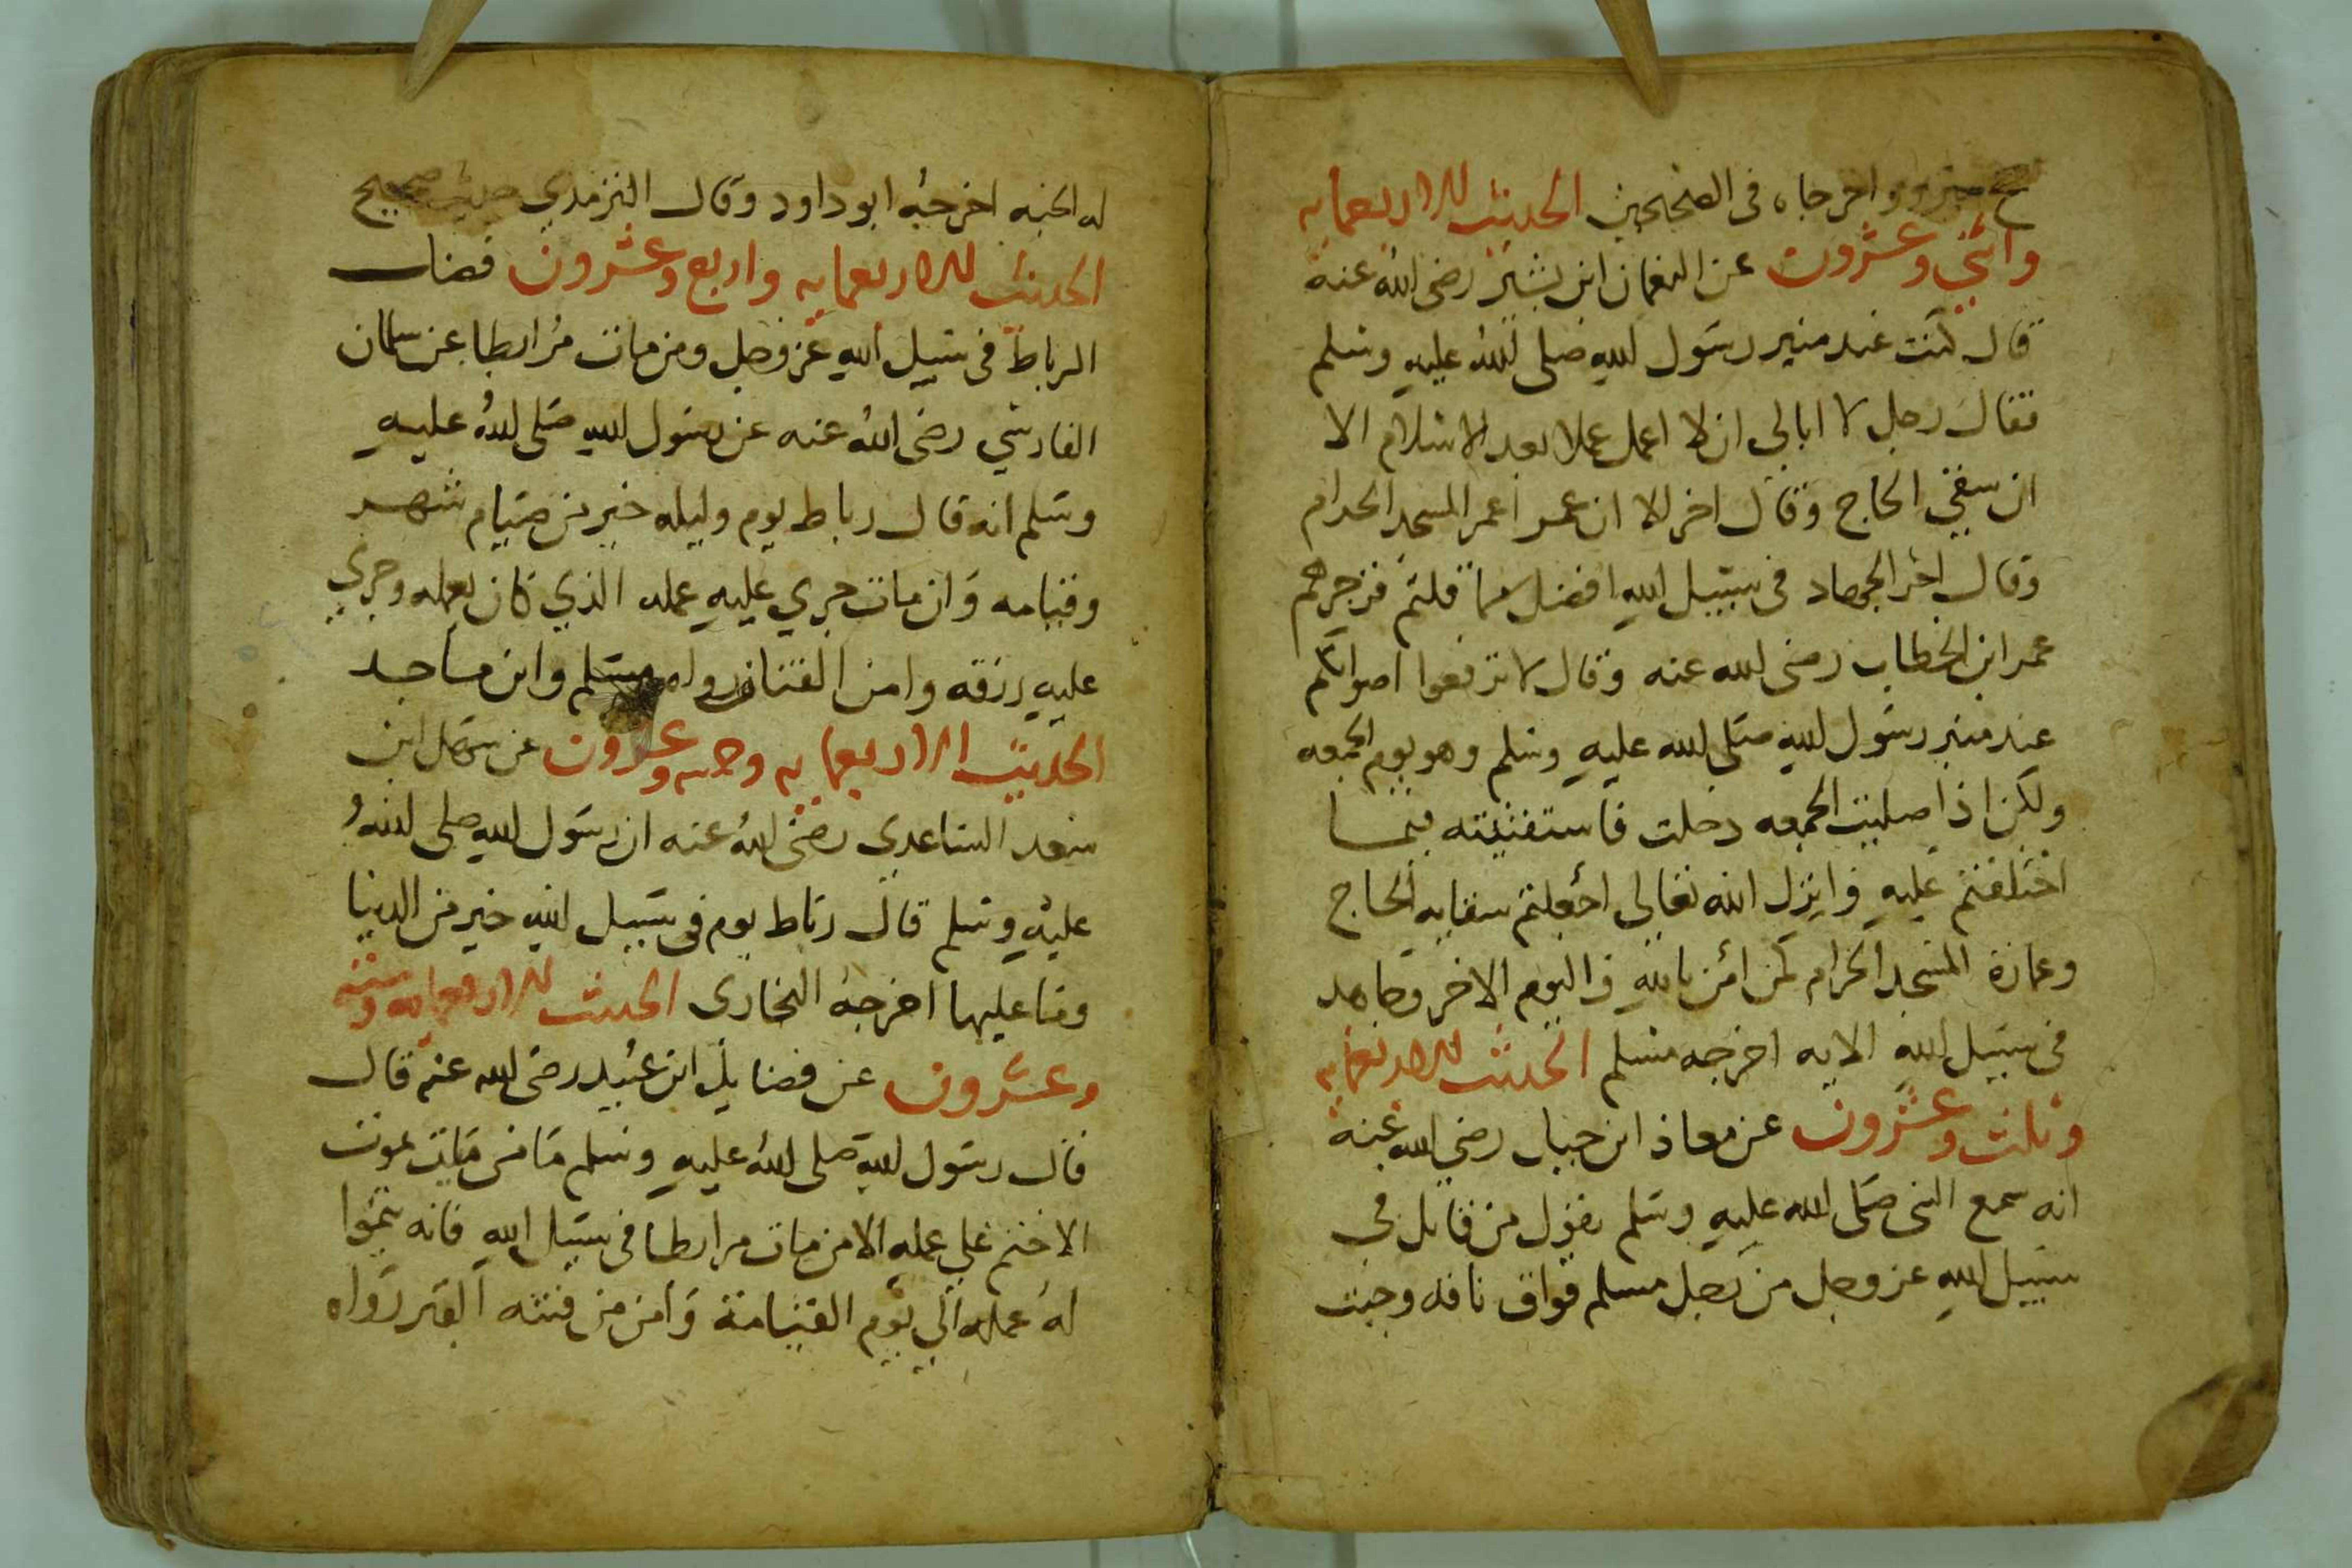 حج مبرور واخرجاه في الصحيحين الحديث الاربعمايه
واثني وعشرون عن النعمان ابن بشير رضى الله عنه
قال كنت عند منبر رسول الله صلى الله عليه وسلم
فقال رجل لا ابالي ان لا اعمل عملا بعد الاسلام الا
ان سقي الحاج وقال اخر الا ان عمر اعمر المسجد الحرام
وقال اخر الجهاد في سبيل الله افضل مما قلتم فزجرهم
عمر ابن الخطاب رضى الله عنه وقال لا ترفعوا اصواتكم
عند منبر رسول الله صلى الله عليه وسلم وهو يوم الجمعه
ولكن اذا صليت الجمعه دخلت فاستفتيته فيما
اختلفتم عليه فانزل الله تعالى اجعلتم سقايه الحاج
وعمارة المسجد الحرام كمن امن بالله واليوم الاخر وجاهد
في سبيل الله الايه اخرجه مسلم الحديث الاربعمايه
وثلث وعشرون عن معاذ ابن جبل رضي الله عنه
انه سمع النبى صلى الله عليه وسلم يقول من قاتل في
سبيل الله عز وجل من رجل مسلم فواق ناقه وجبت
له الجنه اخرجه ابو داود وقال الترمذي حديث صحيح
الحديث الاربعمايه واربع وعشرون فضل
الرباط في سبيل الله عز وجل ومن مات مرابطا عن سلمان
الفارسي رضى الله عنه عن رسول الله صلى الله عليه
وسلم انه قال رباط يوم وليله خير من صيام شهر
وقيامه وان مات جري عليه عمله الذي كان يعمله وجري
عليه رزقه وامن الفتان رواه مسلم وابن ماجد
الحديث الاربعمايه وخمسه وعشرون عن سهل ابن
سعد الساعدي رضى الله عنه ان رسول الله صلى الله
عليه وسلم قال رباط يوم في سبيل الله خير من الدنيا
وما عليها اخرجه البخارى الحديث الاربعمايه وسته
وعشرون عن فضايل ابن عبيد رضى الله عنه قال
قال رسول الله صلى الله عليه وسلم ما من مايت يموت
الا ختم على عمله الا من مات مرابطا في سبيل الله فانه ينموا
له عمله الى يوم القيامة وامن من فتنه القبر رواه